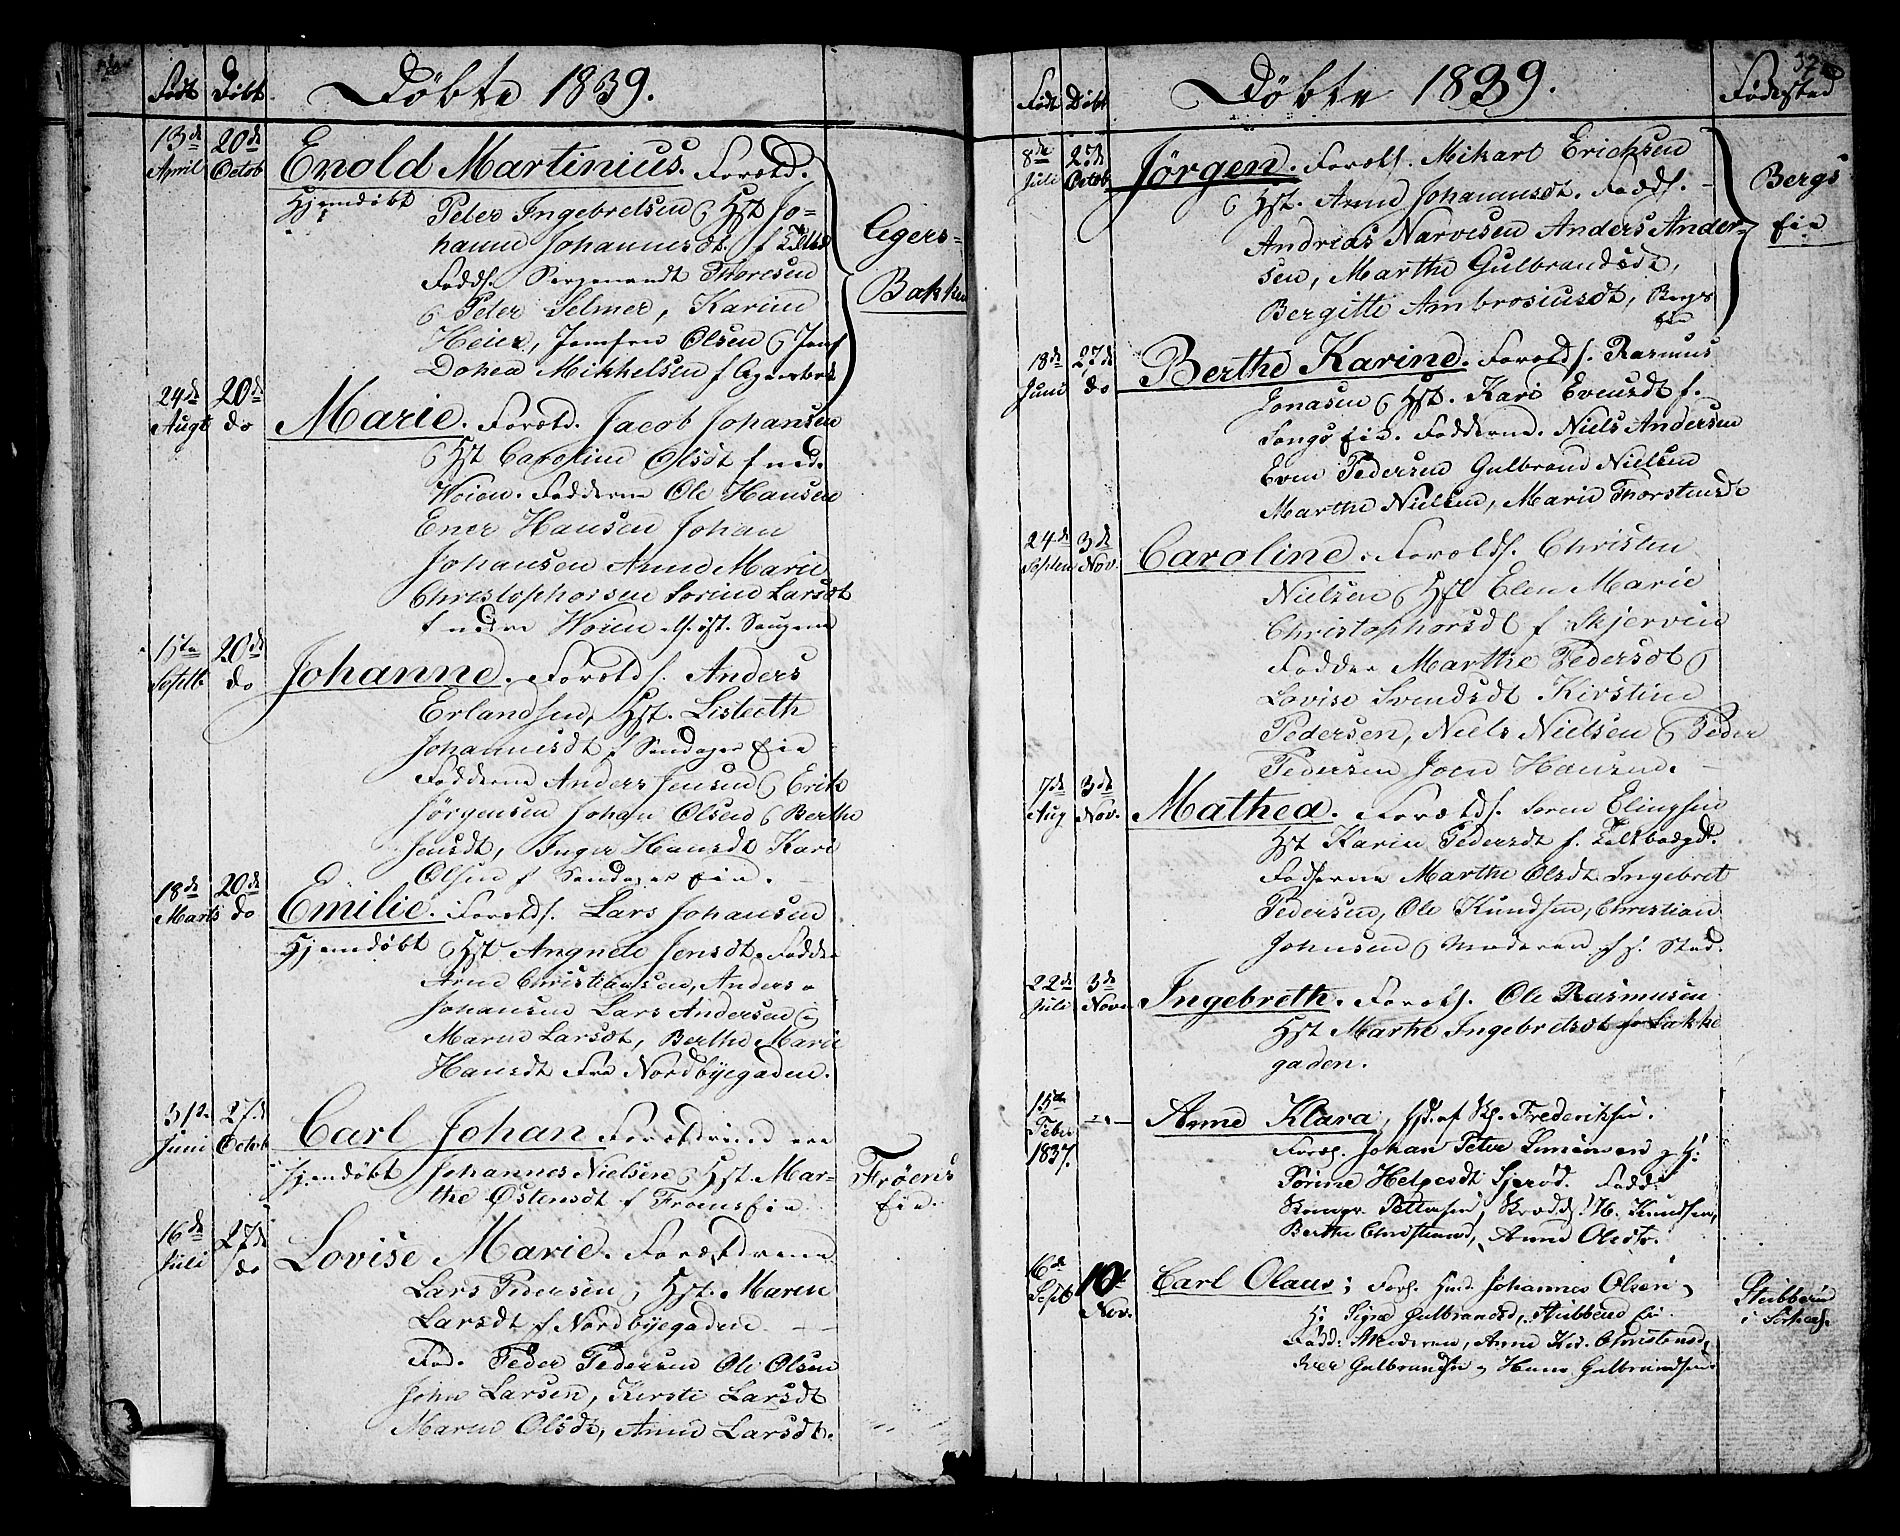 Født Døbt Døbte 1839.
13de April 20de Octob Enold Martinius. Foræld.
Hjemdøbt Peter Ingebretsen & Hst Jo-
hanne Johannesdt. f
Fadds. Thoresen
& Peter Selmer, Karine
Heier, Jomfru Olsen & Jomf
Dohea Mikkelsen f Agersbak
Agers-
Bakken
24de Augt 20de do Marie. Foræld. Jacob Johansen
& Hst Caroline Olsdt f ned.
Woien. Fadderne Ole Hansen
Ener Hansen Johan
Johansen Anne Marie
Christophersen Sorine Larsdt
f nedre Woien
Septbr 20de do Johanne. Forælds. Anders
Erlandsen, Hst. Lisbeth
Johannisdt f Sandager Eie
Fadderne Anders Jensen & Erik
Jørgensen Johan Olsen & Berthe
Jensdt, Inger Hansdt Kari
Olsen f Sandager Eie.
18de Marts 20de do Emilie. Forælds. Lars Johansen
Hjemdøbt & Hst Angnete Jensdt. Fadde
Arne Christiansen, Anders
Johansen Lars Andersen &
Maren Larsdt, Berthe Marie
Hansdt Fra Nordbyegaden.
Juni 27de Octob Carl Johan Forældrene ere
Hjemdøbt Johannes Nielsen & Hst Mar-
the Østensdt f Froens Eie
Frøens
Eie.
16de Juli 27de do Lovise Marie. Forældrene
Lars Pedersen & Hst. Maren
Larsdt f Nordbyegaden
Fad. Peder Pedersen Ole Olsen
John Larsen, Kersti Larsdt
Maren Olsdt, Anne Larsdt.
Født Døbt Døbte 1839. Fødested
8de Juli 27de Octob Jørgen. Forælds. Mikael Erichsen
& Hst. Anne Johannesdt. Fadds.
Andreas Narvesen Anders Ander-
sen, Marthe Gulbrandsdt,
Bergitte Ambrosiusdt, Bergs
Eie
Bergs
Eie
18de Juni 27de do Berthe Karine. Forælds. Rasmus
Jonasen & Hst. Kari Evensdt f.
Songs Eie. Fadderne. Niels Andersen
Even Pedersen Gulbrand Nielsen
Marthe Nielsen, Marie Thorstensdt
24de Septem 3de Nov. Caroline. Forælds. Christen
Nielsen & Hst Elen Marie
Christophersdt f Skjerven
Fadder Marthe Pedersdt &
Lovise Svendsdt Kirstine
Pedersen, Niels Nielsen & Peder
Pedersen Joen Hansen.
7de Aug 3de Nov. Mathea. Forælds. Soren Elingsen
Hst Karen Pedersdt f.
Fadderne Marthe Olsdt Ingebret
Pedersen, Ole Knudsen, Christian
Johnsen & Moderen
22de Juli 3de Nov Ingebreth. Forælds. Ole Rasmusen
Hst Marthe Ingebretsdt fr Lakke
gaden.
15de Febr 1837. Anne Klara,
Johan Peter Simensen & H:
Sørine Helgesdt
Pettersen, H. Knudsen,
Berthe Christians, Anne Olsdtr.
6te Sept 10de Nov. Carl Olaus; Johannes Olsen &
H: Signe Gulbrandsd, Stubberud Eie
Fadd: Moderen, Anne Christensd,
Iver Gulbrandsen & Hans Gulbrandsen.
Stubberud
i Sørked.